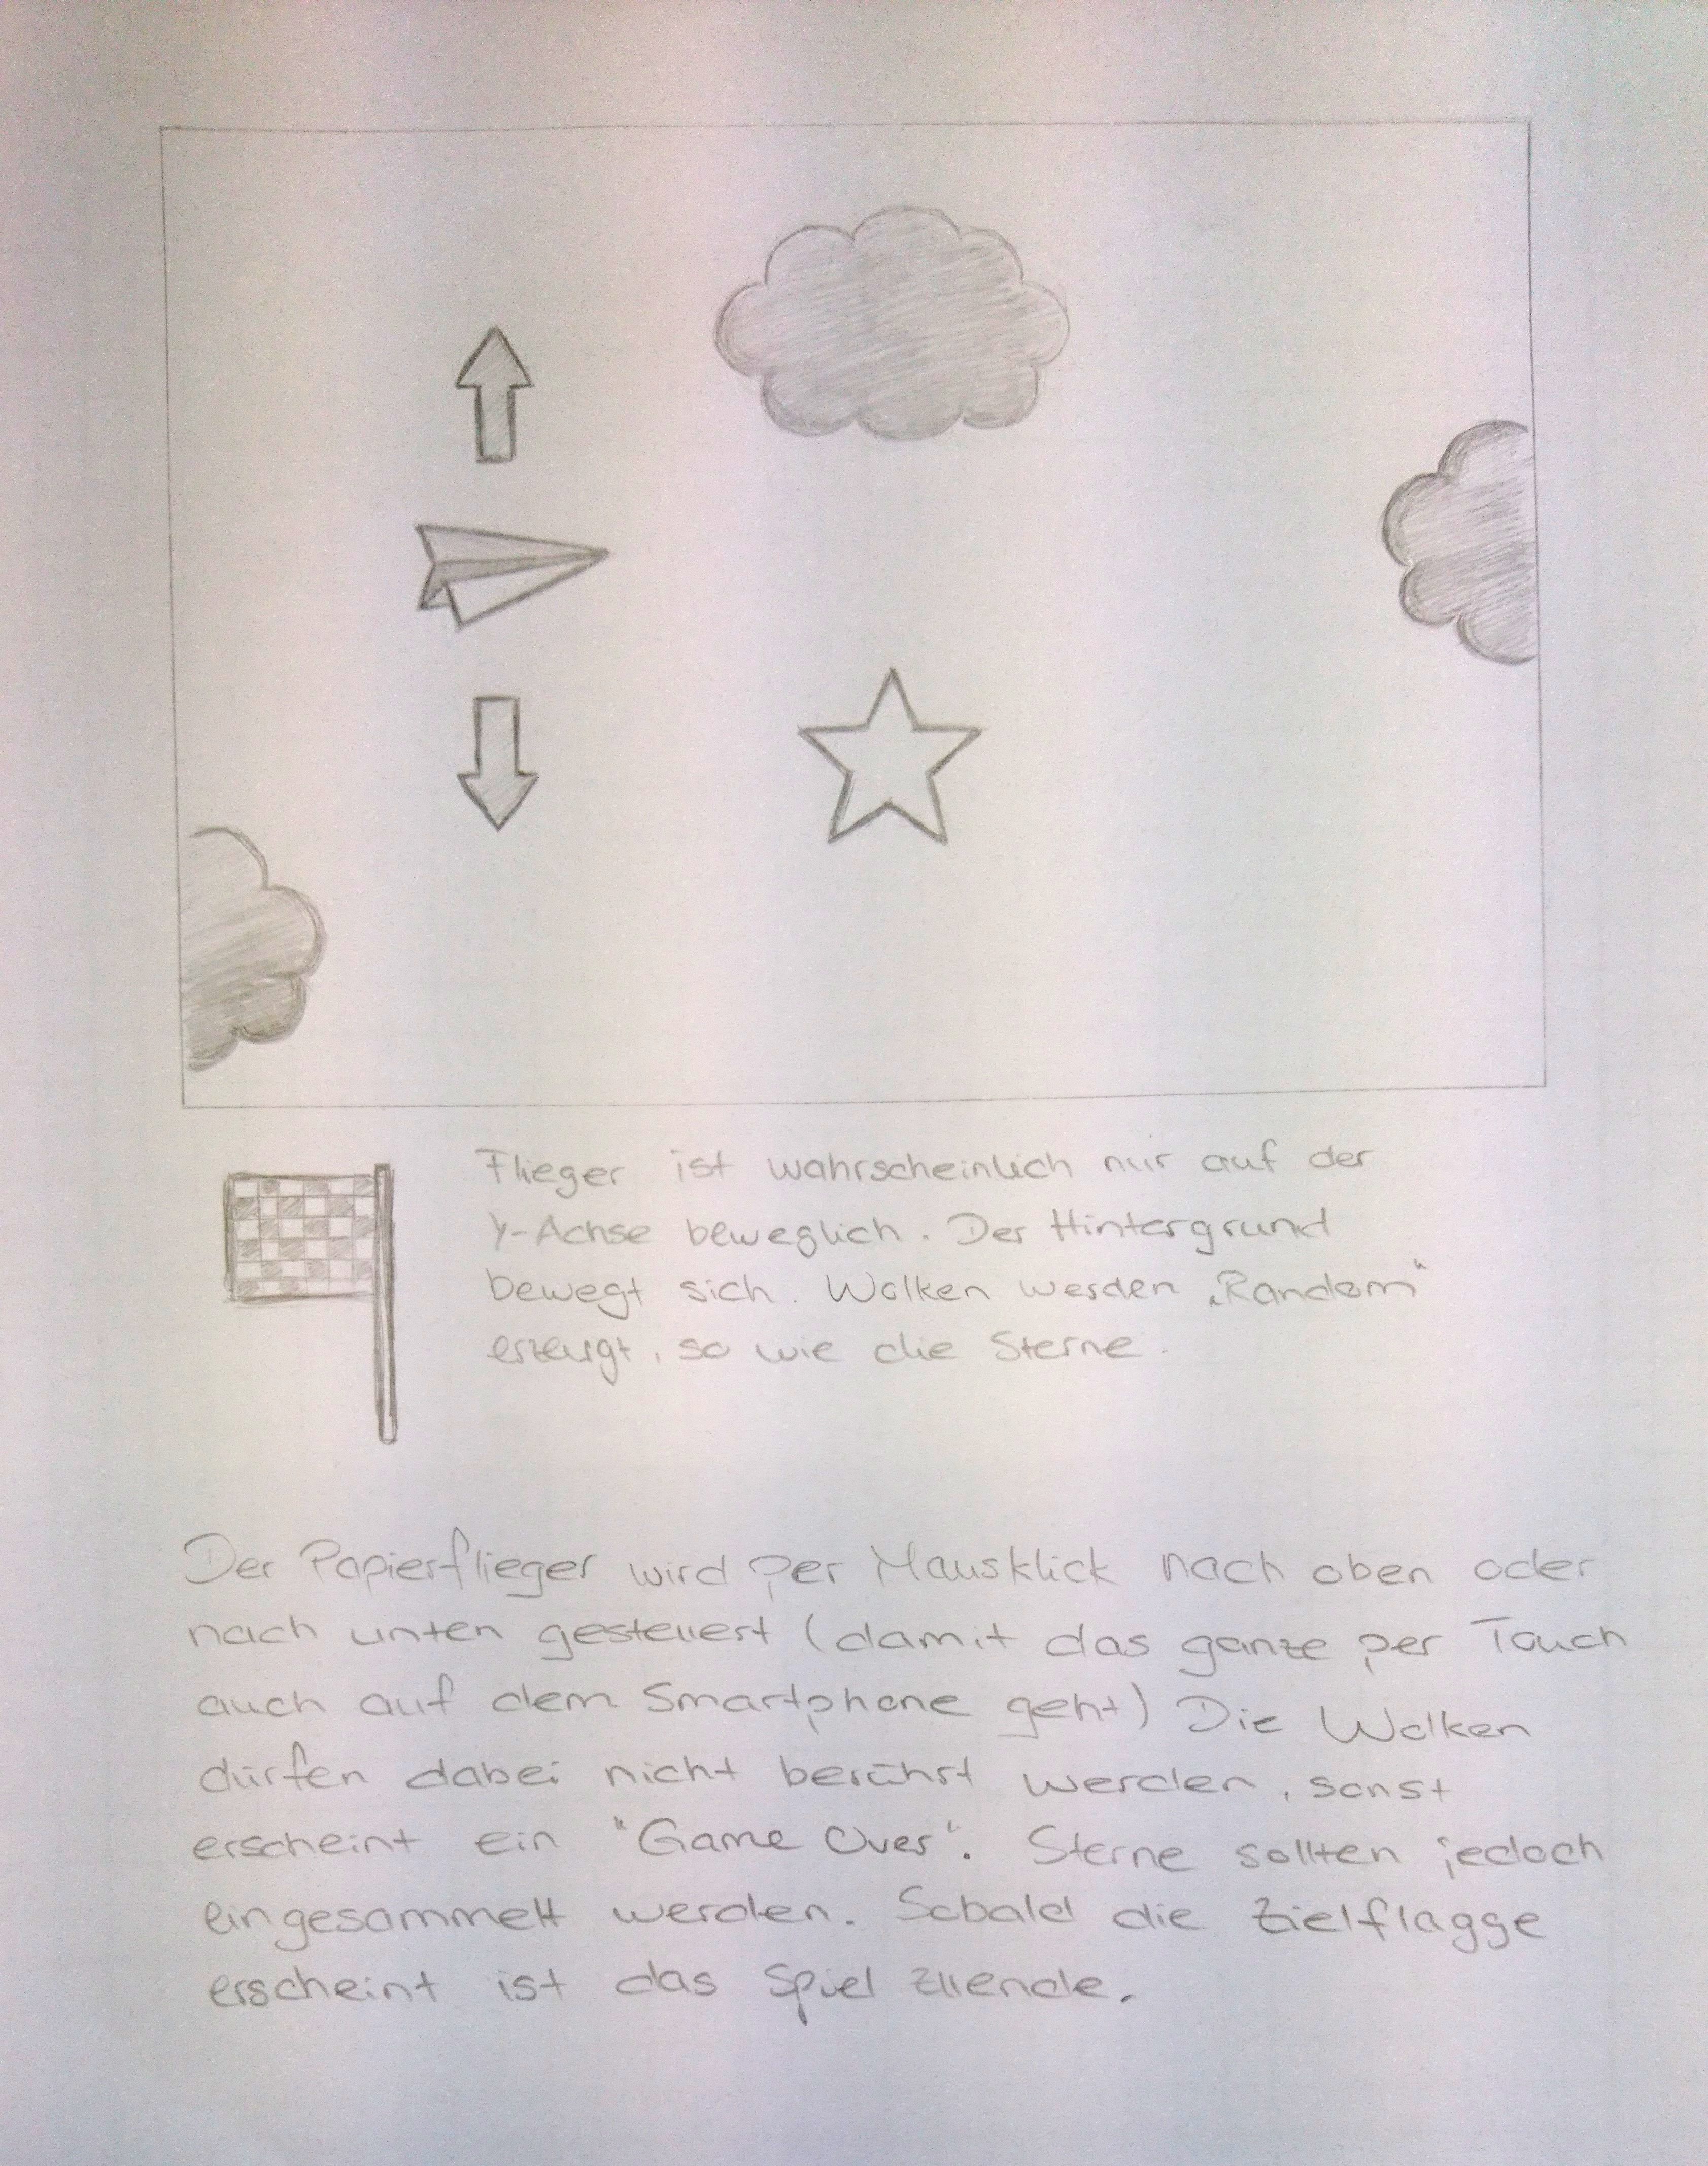 Flieger ist wahrscheinlich nur auf der
Y-Achse beweglich. Der Hintergrund
bewegt sich. Wolken werden „Random“
erzeugt, so wie die Sterne.
Der Papierflieger wird per Mausklick nach oben oder
nach unten gesteuert (damit das ganze per Touch
auch auf dem Smartphone geht) Die Wolken
dürfen dabei nicht berührt werden, sonst
erscheint ein "Game Over". Sterne sollten jedoch
eingesammelt werden. Sobald die Zielflagge
erscheint ist das Spiel zuende.